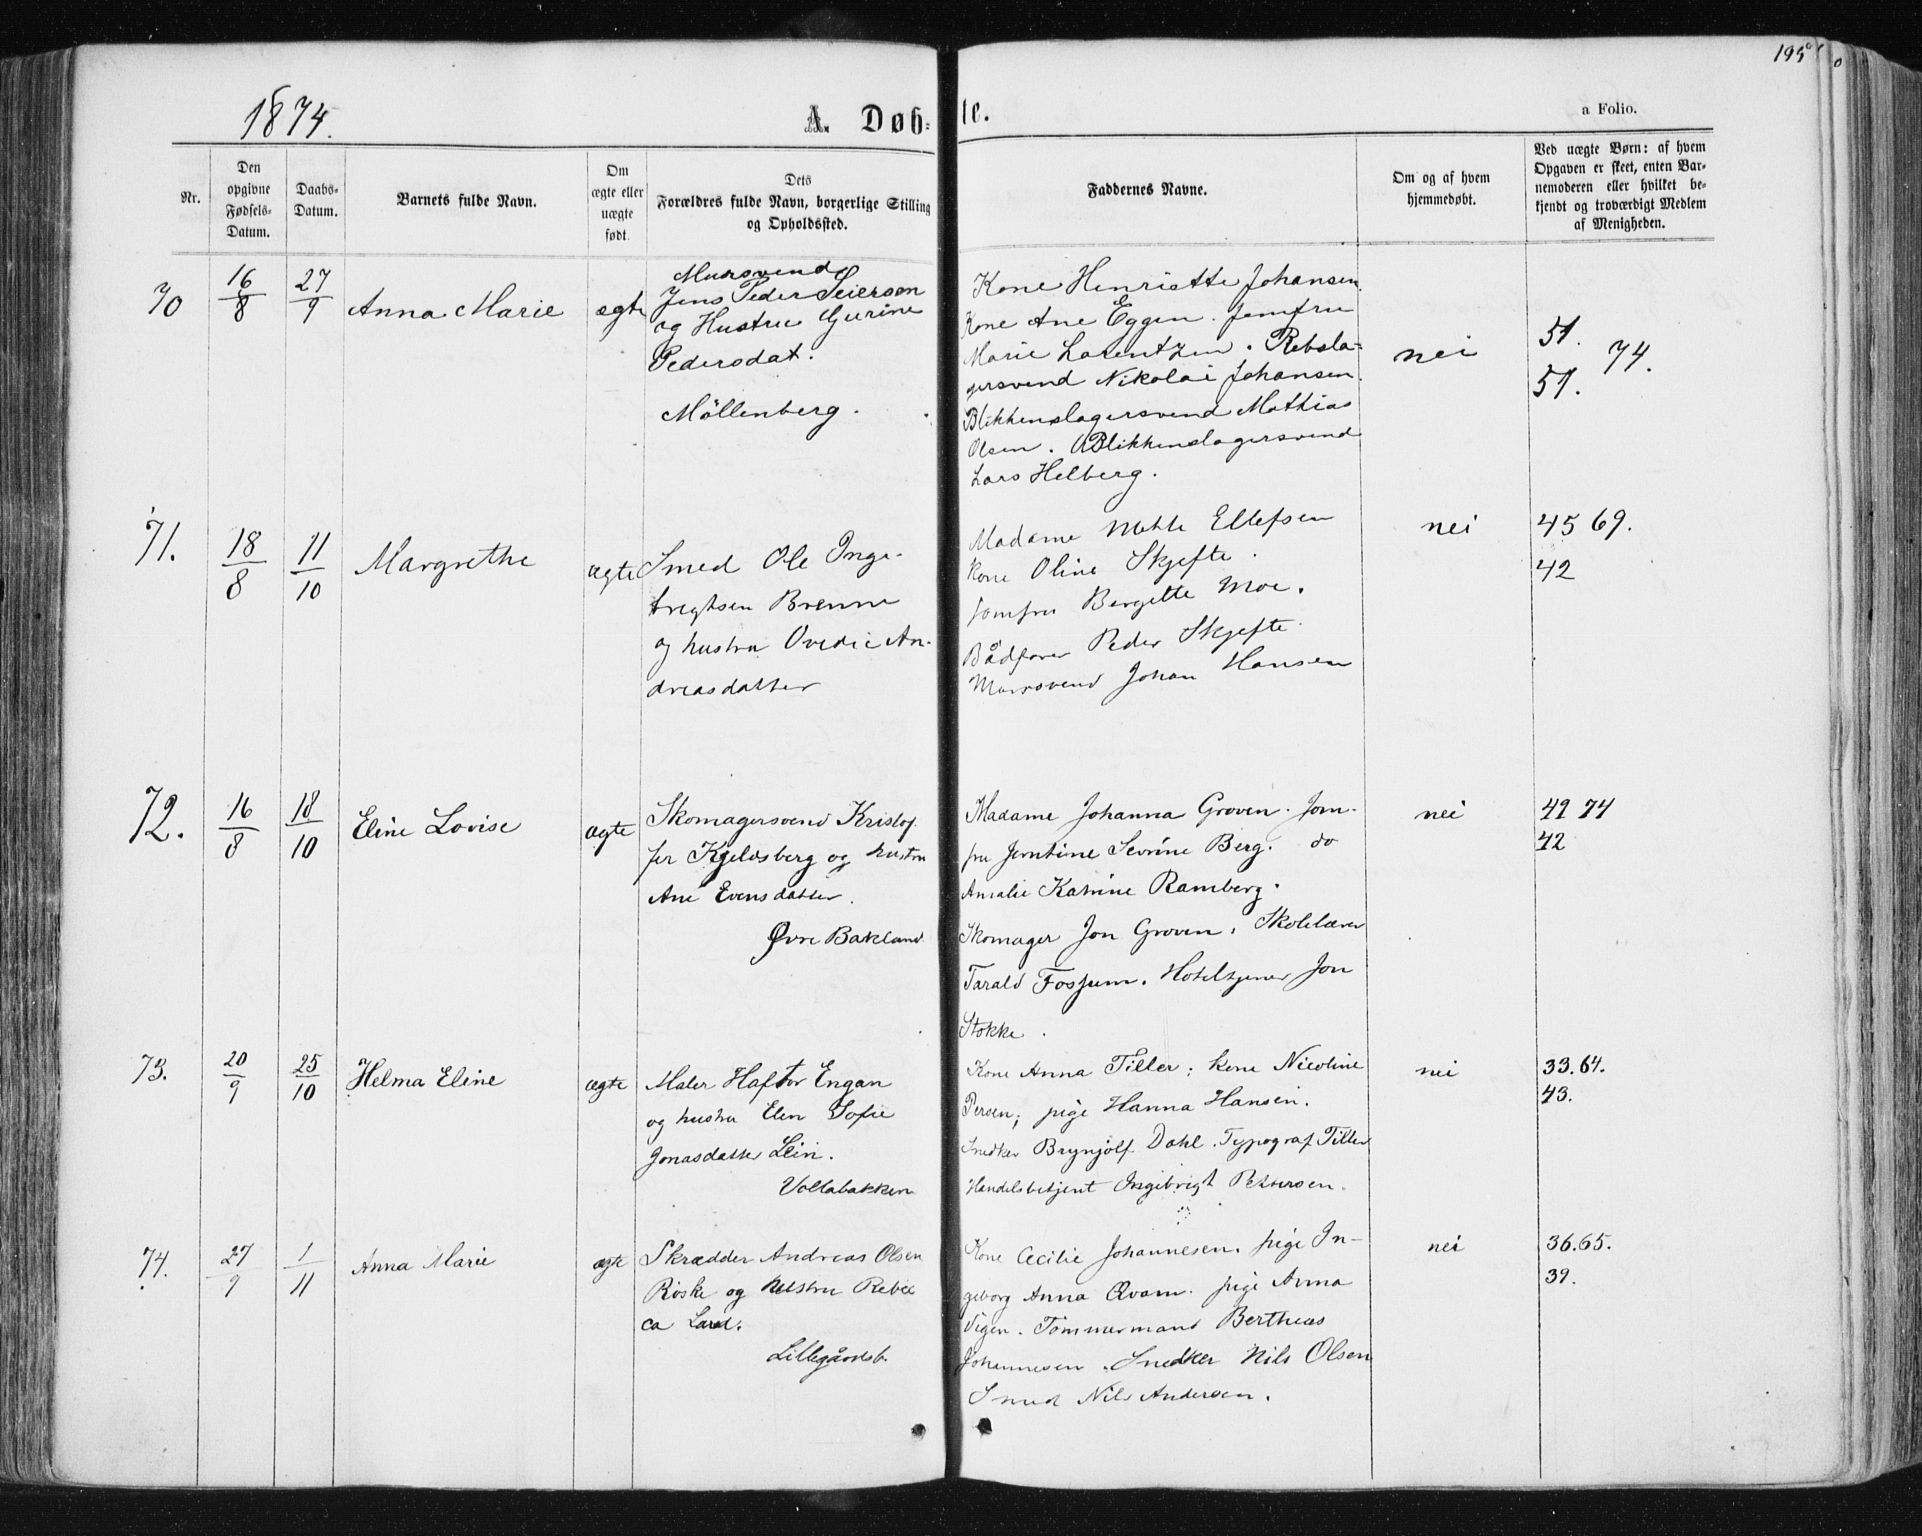 195
1874.
A. Døbte.
a Folio.
Nr.
Den opgivne Fødsels-Datum.
Daabs-Datum.
Barnets fulde Navn.
Om ægte eller uægte født.
Dets Forældres fulde Navn, borgerlige Stilling og Opholdssted.
Faddernes Navne.
Om og af hvem hjemmedøbt.
Ved uægte Børn: af hvem Opgaven er skeet, enten Barnemoderen eller hvilket bekjendt og troværdigt Medlem af Menigheden.
70
16/8
27/9
Anna Marie
ægte
Mursvend
Jens Peder Seiersen
og Hustru Gurine
Pedersdat.
Möllenberg.
Kone Henriette Johansen.
Kone Ane Eggen. Jomfru
Marie Larentzen. Rebsla-
gersvend Nikolai Johansen.
Blikkenslagersvend Mathias
Olsen. Blikkenslagersvend
Lars Helberg.
nei
51.
74.
51.
71.
18/8
11/10
Margrethe
ægte
Smed Ole Inge-
bregtsen Brenne
og hustru Ovedie An-
dreasdatter
Madame Mette Ellefsen
kone Oline Skjefte.
Jomfru Bergette Moe.
Bådfører Peder Skjefte.
Mursvend Johan Hansen
nei
45 69.
42
72.
16/8
18/10
Eline Lovise
ægte
Skomagersvend Kristof-
fer Kjeldsberg og hustru
Ane Evensdatter.
Øvre Bakland
Madame Johanna Groven. Jom-
fru Jerntine Sevrine Berg. do
Amalie Katrine Ramberg.
Skomager Jon Groven. Skolelærer
Tarald Fosjum. Hoteltjener Jon
Stokke.
nei
49 74
42
73.
20/9
25/10
Helma Eline
ægte
Maler Haftor Engan
og hustru Elen Sofie
Jonasdatter Lein.
Vollabakken
Kone Anna Tiller; kone Nicoline
Persen; pige Hanna Hansen.
Snedker Brynjolf Dahl. Typograf Tiller
Handelsbetjent Ingibrigt Petersen.
nei
33. 64.
43.
74.
27/9
1/11
Anna Marie
ægte
Skrædder Andreas Olsen
Röske og hustru Rebec
ca Lared.
Lillegårdsb.
Kone Cecilie Johannesen. pige In-
geborg Anna Qvam. pige Anna
Vigen. Tömmermand Bertheas
Johannesen. Snedker Nils Olsen
Smed Nils Andersen.
nei
36. 65.
39.